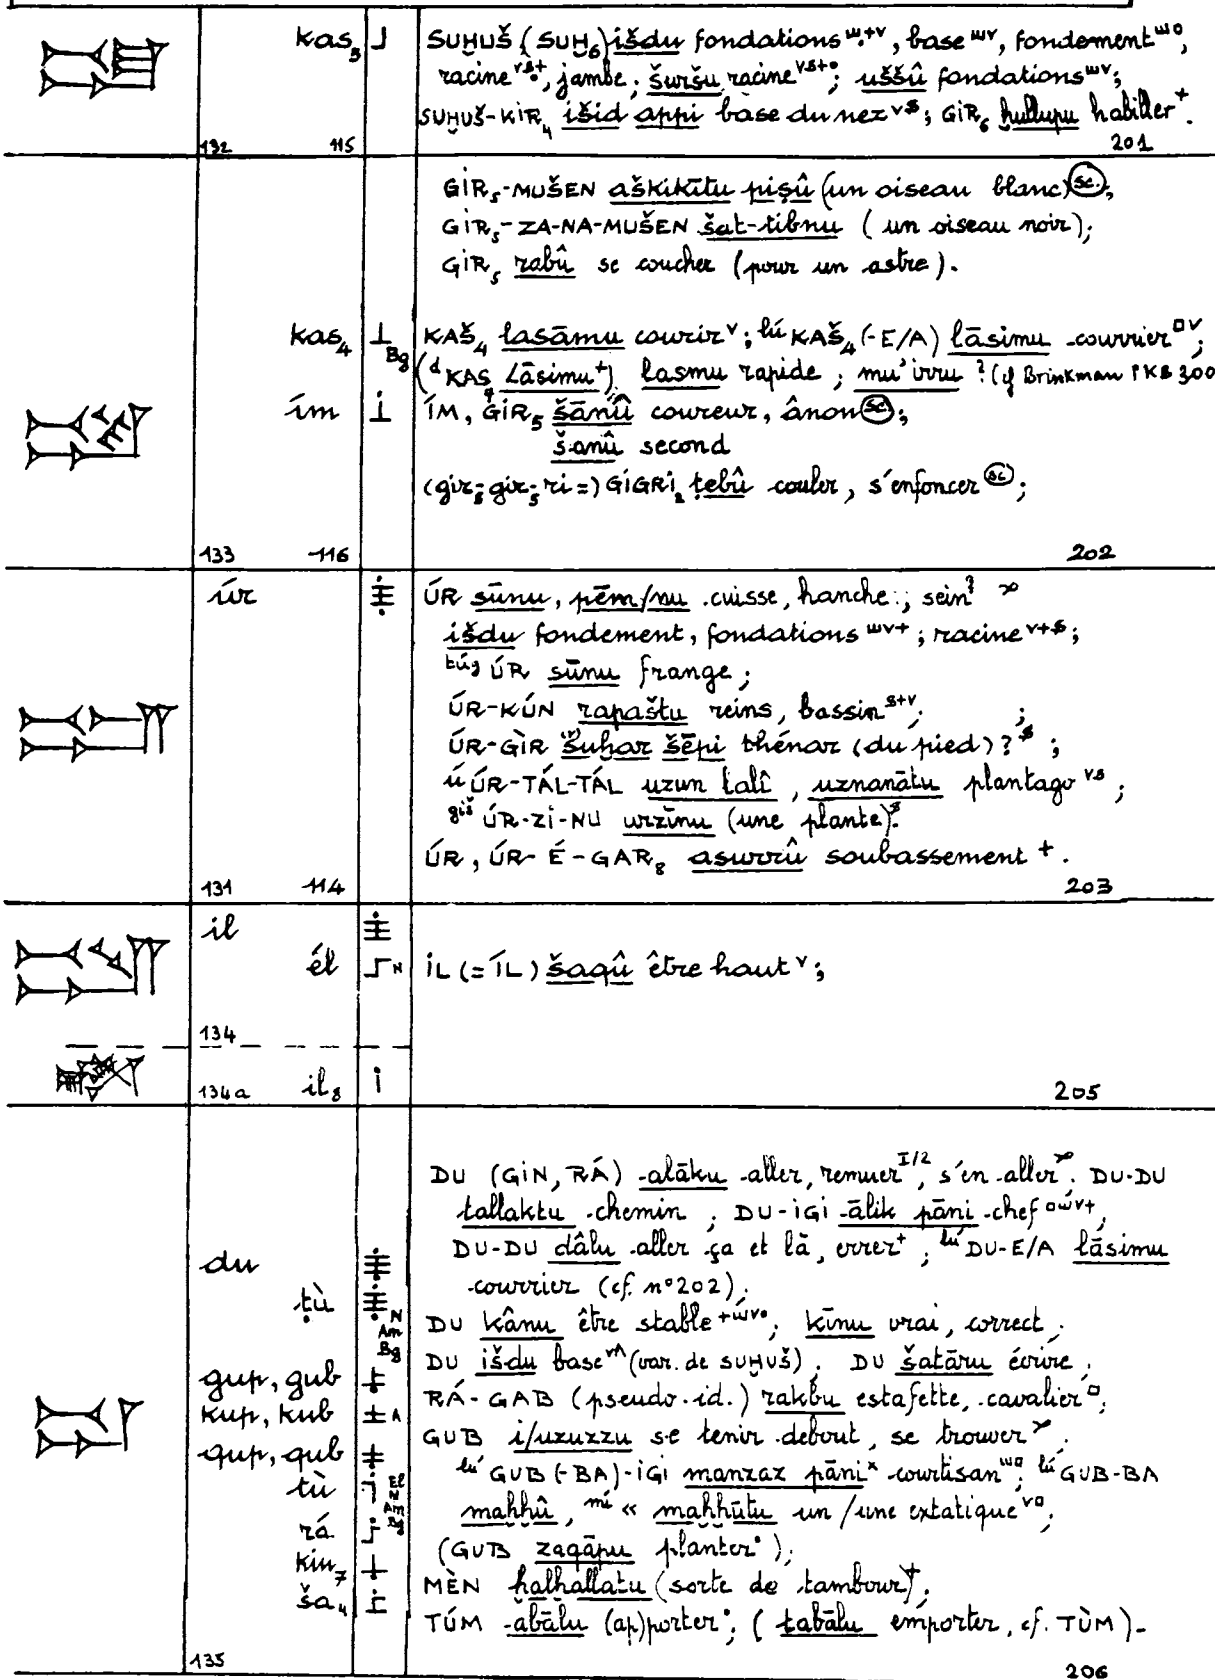 kas₅ SUḪUŠ (SUḪ₆) išdu fondations ᵚ·⁺ᵛ, base ᵚᵛ, fondement ᵚ°,
racine ᵛˢ⁺, jambe; šuršu racine ᵛˢ⁺°; uššû fondations ᵚᵛ;
SUḪUŠ-KIR₄ išid appi base du nez ᵛˢ; GIR₆ ḫullupu habiller ⁺.
132 115 201
GÌR₅-MUŠEN aškikītu piṣû (un oiseau blanc) sc.;
GÌR₅-ZA-NA-MUŠEN šat-tibnu (un oiseau noir);
GÌR₅ rabû se coucher (pour un astre).
kas₄ Bg KAŠ₄ lasāmu courir ᵛ; lú KAŠ₄ (-E/A) lāsimu courrier ▫ᵛ;
(ᵈKAŠ₄ Lāsimu⁺) lasmu rapide; mu'irru ? (cf Brinkman PKB 300
ím ÍM, GÌR₅ šānû coureur, ânon sc;
šanû second
(gir₅-gir₅-ri =) GIGRI₂ ṭebû couler, s'enfoncer sc;
133 116 202
úr ÚR sūnu, pēm/nu cuisse, hanche; sein?
išdu fondement, fondations ᵚᵛ⁺; racine ᵛ⁺ˢ;
túg ÚR sūnu frange;
ÚR-KÚN rapaštu reins, bassin ˢ⁺ᵛ;
ÚR-GÌR šuḫar šēpi thénar (du pied)? ˢ;
ú ÚR-TÁL-TÁL uzun talî, uznanātu plantago ᵛˢ;
giš ÚR-ZI-NU urzīnu (une plante) ˢ.
ÚR, ÚR-É-GAR₈ asurrû soubassement ⁺.
131 114 203
il
él N ÍL (= ÍL) šaqû être haut ᵛ;
134
134a il₈ 205
DU (GIN, RÁ) alāku aller, remuer I/2, s'en aller. DU-DU
tallaktu chemin; DU-IGI ālik pāni chef ▫ᵚᵛ⁺,
du DU-DU dâlu aller ça et là, errer⁺; lú DU-E/A lāsimu
courrier (cf. n° 202);
ṭù N Am Bg DU kânu être stable ⁺ᵚᵛ°; kīnu vrai, correct;
DU išdu base ᵛᴬ (var. de SUḪUŠ). DU šatāru écrire;
gup, gub RÁ-GAB (pseudo-id.) rakbu estafette, cavalier ▫;
kup, kub A GUB i/uzuzzu se tenir debout, se trouver.
qup, qub lú GUB(-BA)-IGI manzaz pāni ˣ courtisan ᵚ▫; lú GUB-BA
tù maḫḫû, mí « maḫḫūtu un/une extatique ᵛ▫;
rá (GUB zaqāpu planter°);
kin₇ MÈN ḫalḫallatu (sorte de tambour)⁺;
ša₄ TÚM abālu (ap)porter°; (tabālu emporter, cf. TÙM).
135 206